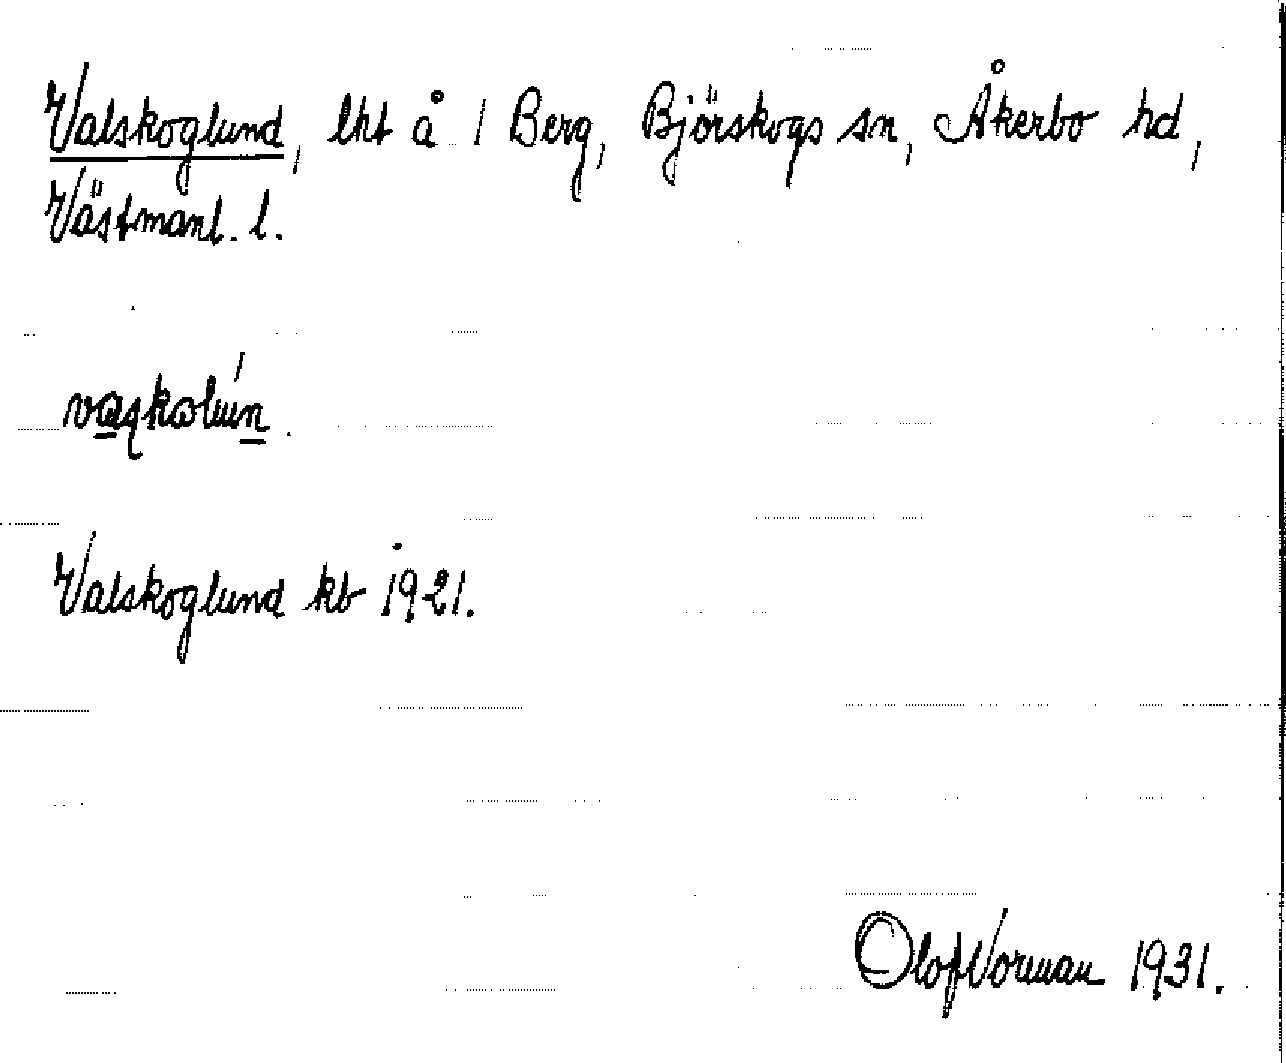 Valskoglund, lht å 1 Berg, Björskogs sn, Åkerbo hd,
Västmanl. l.
Valskoglund kb 1921.
Olof Vorman 1931.